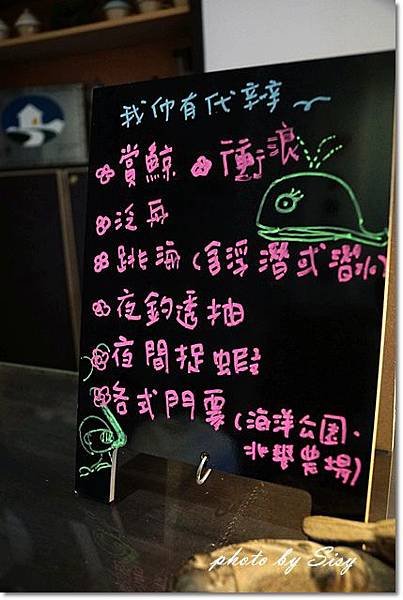 我们有代辦
賞鯨 衝浪
泛舟
跳海(含浮潛或潛水)
夜釣透抽
夜間捉蝦
各式門票(海洋公園、
兆豐農場)
photo by Sisy